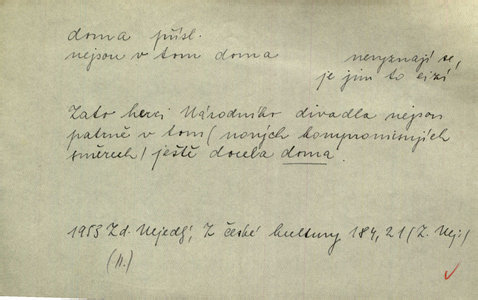 doma přísl.
nejsou v tom doma nevyznají se,
je jim to cizí
Zato herci Národního divadla nejsou
patrně v tom (nových kompromisnějších
směrech) ještě docela doma.
1953 Zd. Nejedlý, Z české kultury 184, 21 (Z. Nej.)
(N.)